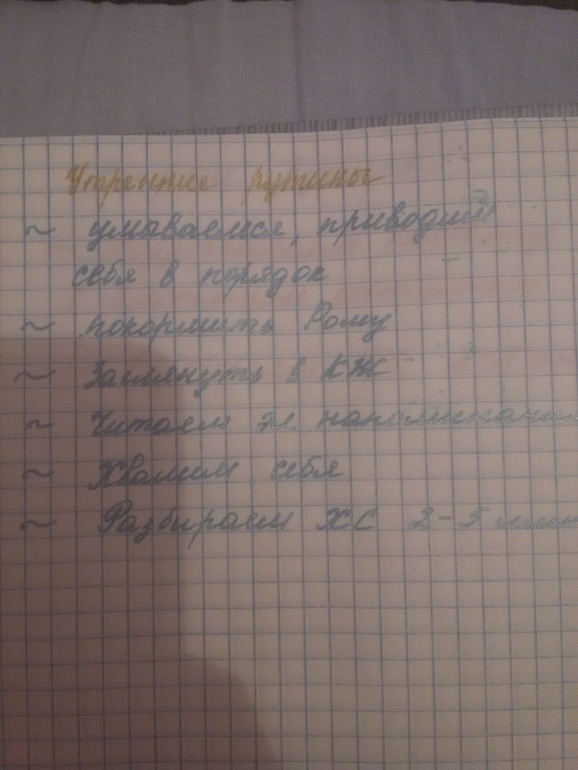 Утренние рутины
~ умываемся, приводим
себя в порядок
~ покормить Рому
~ Заглянуть в КЖ
~ Читаем эл. напоминания
~ Хвалим себя
~ Разбираем ХС 2-5 мин